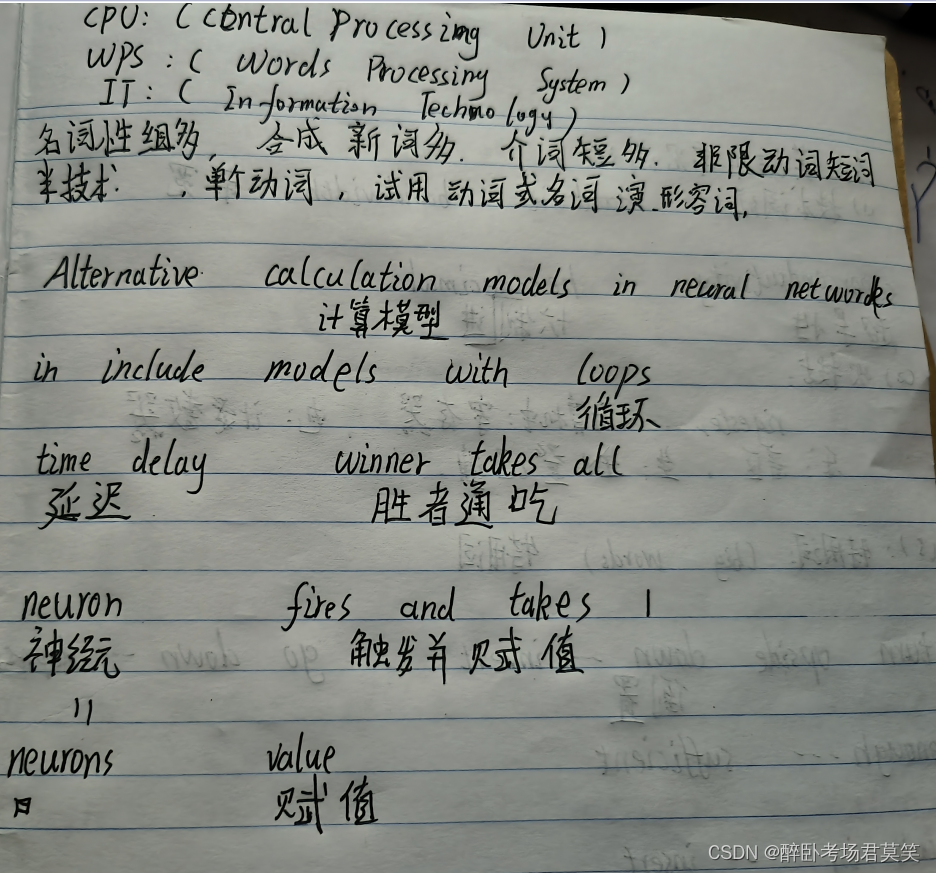 CPU: ( Central Processing Unit )
WPS : ( Words Processing System )
IT : ( Information Technology )
名词性组多, 合成新词多. 介词短多. 非限动词短词
半技术 . 单个动词, 试用动词或名词演形容词,
Alternative calculation models in neural networks
计算模型
in include models with loops
循环
time delay winner takes all
延迟 胜者通吃
neuron fires and takes 1
神经元 触发并赋值
=
neurons value
赋值
CSDN @醉卧考场君莫笑